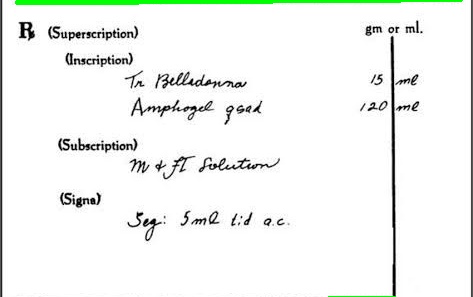 ℞ (Superscription) gm or ml.
(Inscription)
Tr Belladonna 15 ml
Amphogel qsad 120 ml
(Subscription)
M & FT Solution
(Signa)
Seg: 5ml tid a.c.